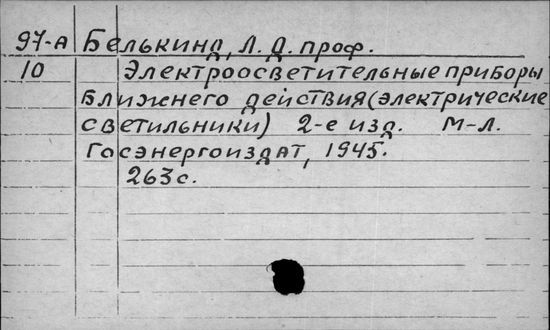 97-А Белькинд, Л. Д. проф.
10 Электроосветительные приборы
ближнего действия (электрические
светильники) 2-е изд. М-Л.
Госэнергоиздат, 1945.
263с.